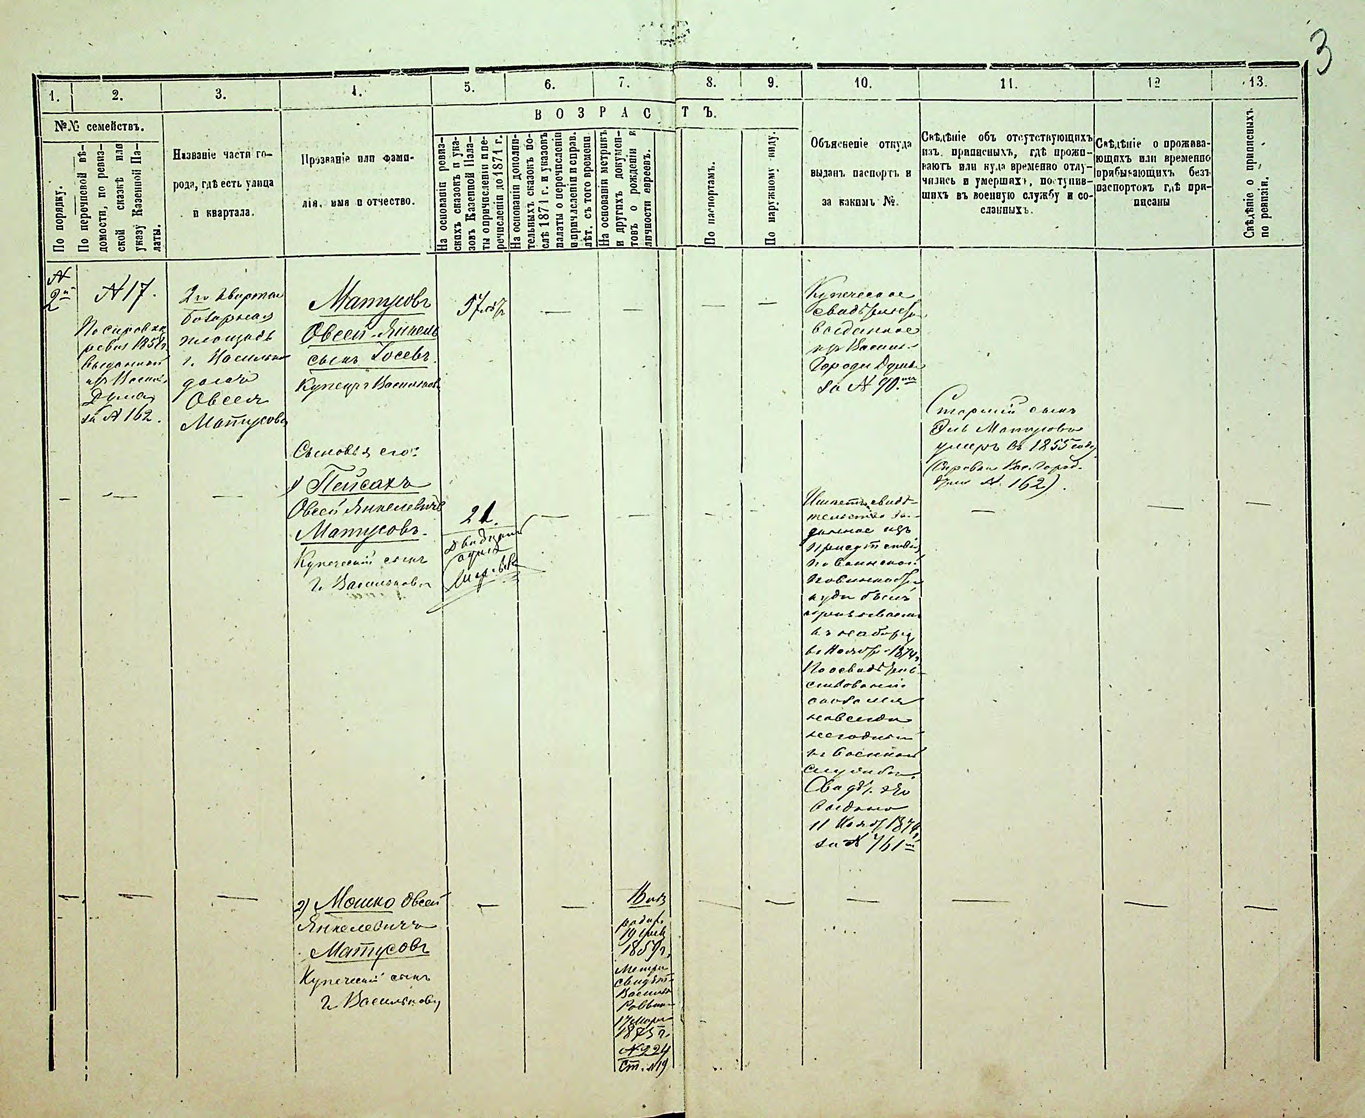 3
1.
2.
3.
4.
5.
6.
7.
8.
9.
10.
11.
12
13.
№№ семействъ.
По порядку.
По перечневой вѣ-
домости, по ревиз-
ской сказкѣ или
указу Казенной Па-
латы.
Названіе части го-
рода, гдѣ есть улица
и квартала.
Прозваніе или фами-
лія, имя и отчество.
ВОЗРАСТЪ.
На основаніи ревиз-
скихъ сказокъ и ука-
зовъ Казенной Пала-
ты о причисленіи и пе-
речисленіи до 1871 г.
На основаніи дополни-
тельныхъ сказокъ по-
слѣ 1871 г. и указовъ
палаты о перечисленіи
и причисленіи и справ.
лѣт. съ того времени.
На основаніи метрикъ
и другихъ докумен-
товъ о рожденіи и
личности евреевъ.
По паспортамъ.
По наружному виду.
Объясненіе откуда
выданъ паспортъ и
за какимъ №.
Свѣдѣніе объ отсутствующихъ
изъ приписныхъ, гдѣ прожи-
ваютъ или куда временно отлу-
чились и умершихъ, поступив-
шихъ въ военную службу и со-
сланныхъ.
Свѣдѣніе о прожива-
ющихъ или временно
прибывающихъ безъ
паспортовъ гдѣ при-
писаны
Свѣдѣніе о приписныхъ
по ревизіи.
№
2й
№ 17.
По справкѣ
ревиз 1858
выданной
Думою
за № 162.
2го квартал
базарная
площадь
г. Василь
домъ
Овсея
Матусова
Матусовъ
Овсей-Янкель
сынъ Іосевъ.
Купецъ г. Васильков
57
Купеческое
свидѣтел
выданное
изъ Васил.
Городск Думы
за № 90.
Старшій сынъ
Матусовъ
умеръ въ 1855 году
(Справка Вас. Город.
Думы № 162).
Сыновья его:
1) Пейсахъ
Овсей Янкелевичъ
Матусовъ.
Купеческій сынъ
г. Василькова
21.
Двадцать
одинъ
Имѣетъ свидѣ-
тельство
изъ
Присутствія
по воинской
повинности
куда былъ
призываемъ
къ набору
въ Ноябр. 1874
По освидѣтель-
ствованіи
оказался
навсегда
негоднымъ
къ военной
службѣ
Свидѣт.
выдано
11 Нояб 1874
за № 761
2) Мошко Овсей
Янкелевичъ
Матусовъ
Купеческій сынъ
г. Василькову
родил.
19
1859 г.
Метри
свидѣт
Васильк
Раввин
17 Мар
1875 г.
№ 224
Ст. № 19